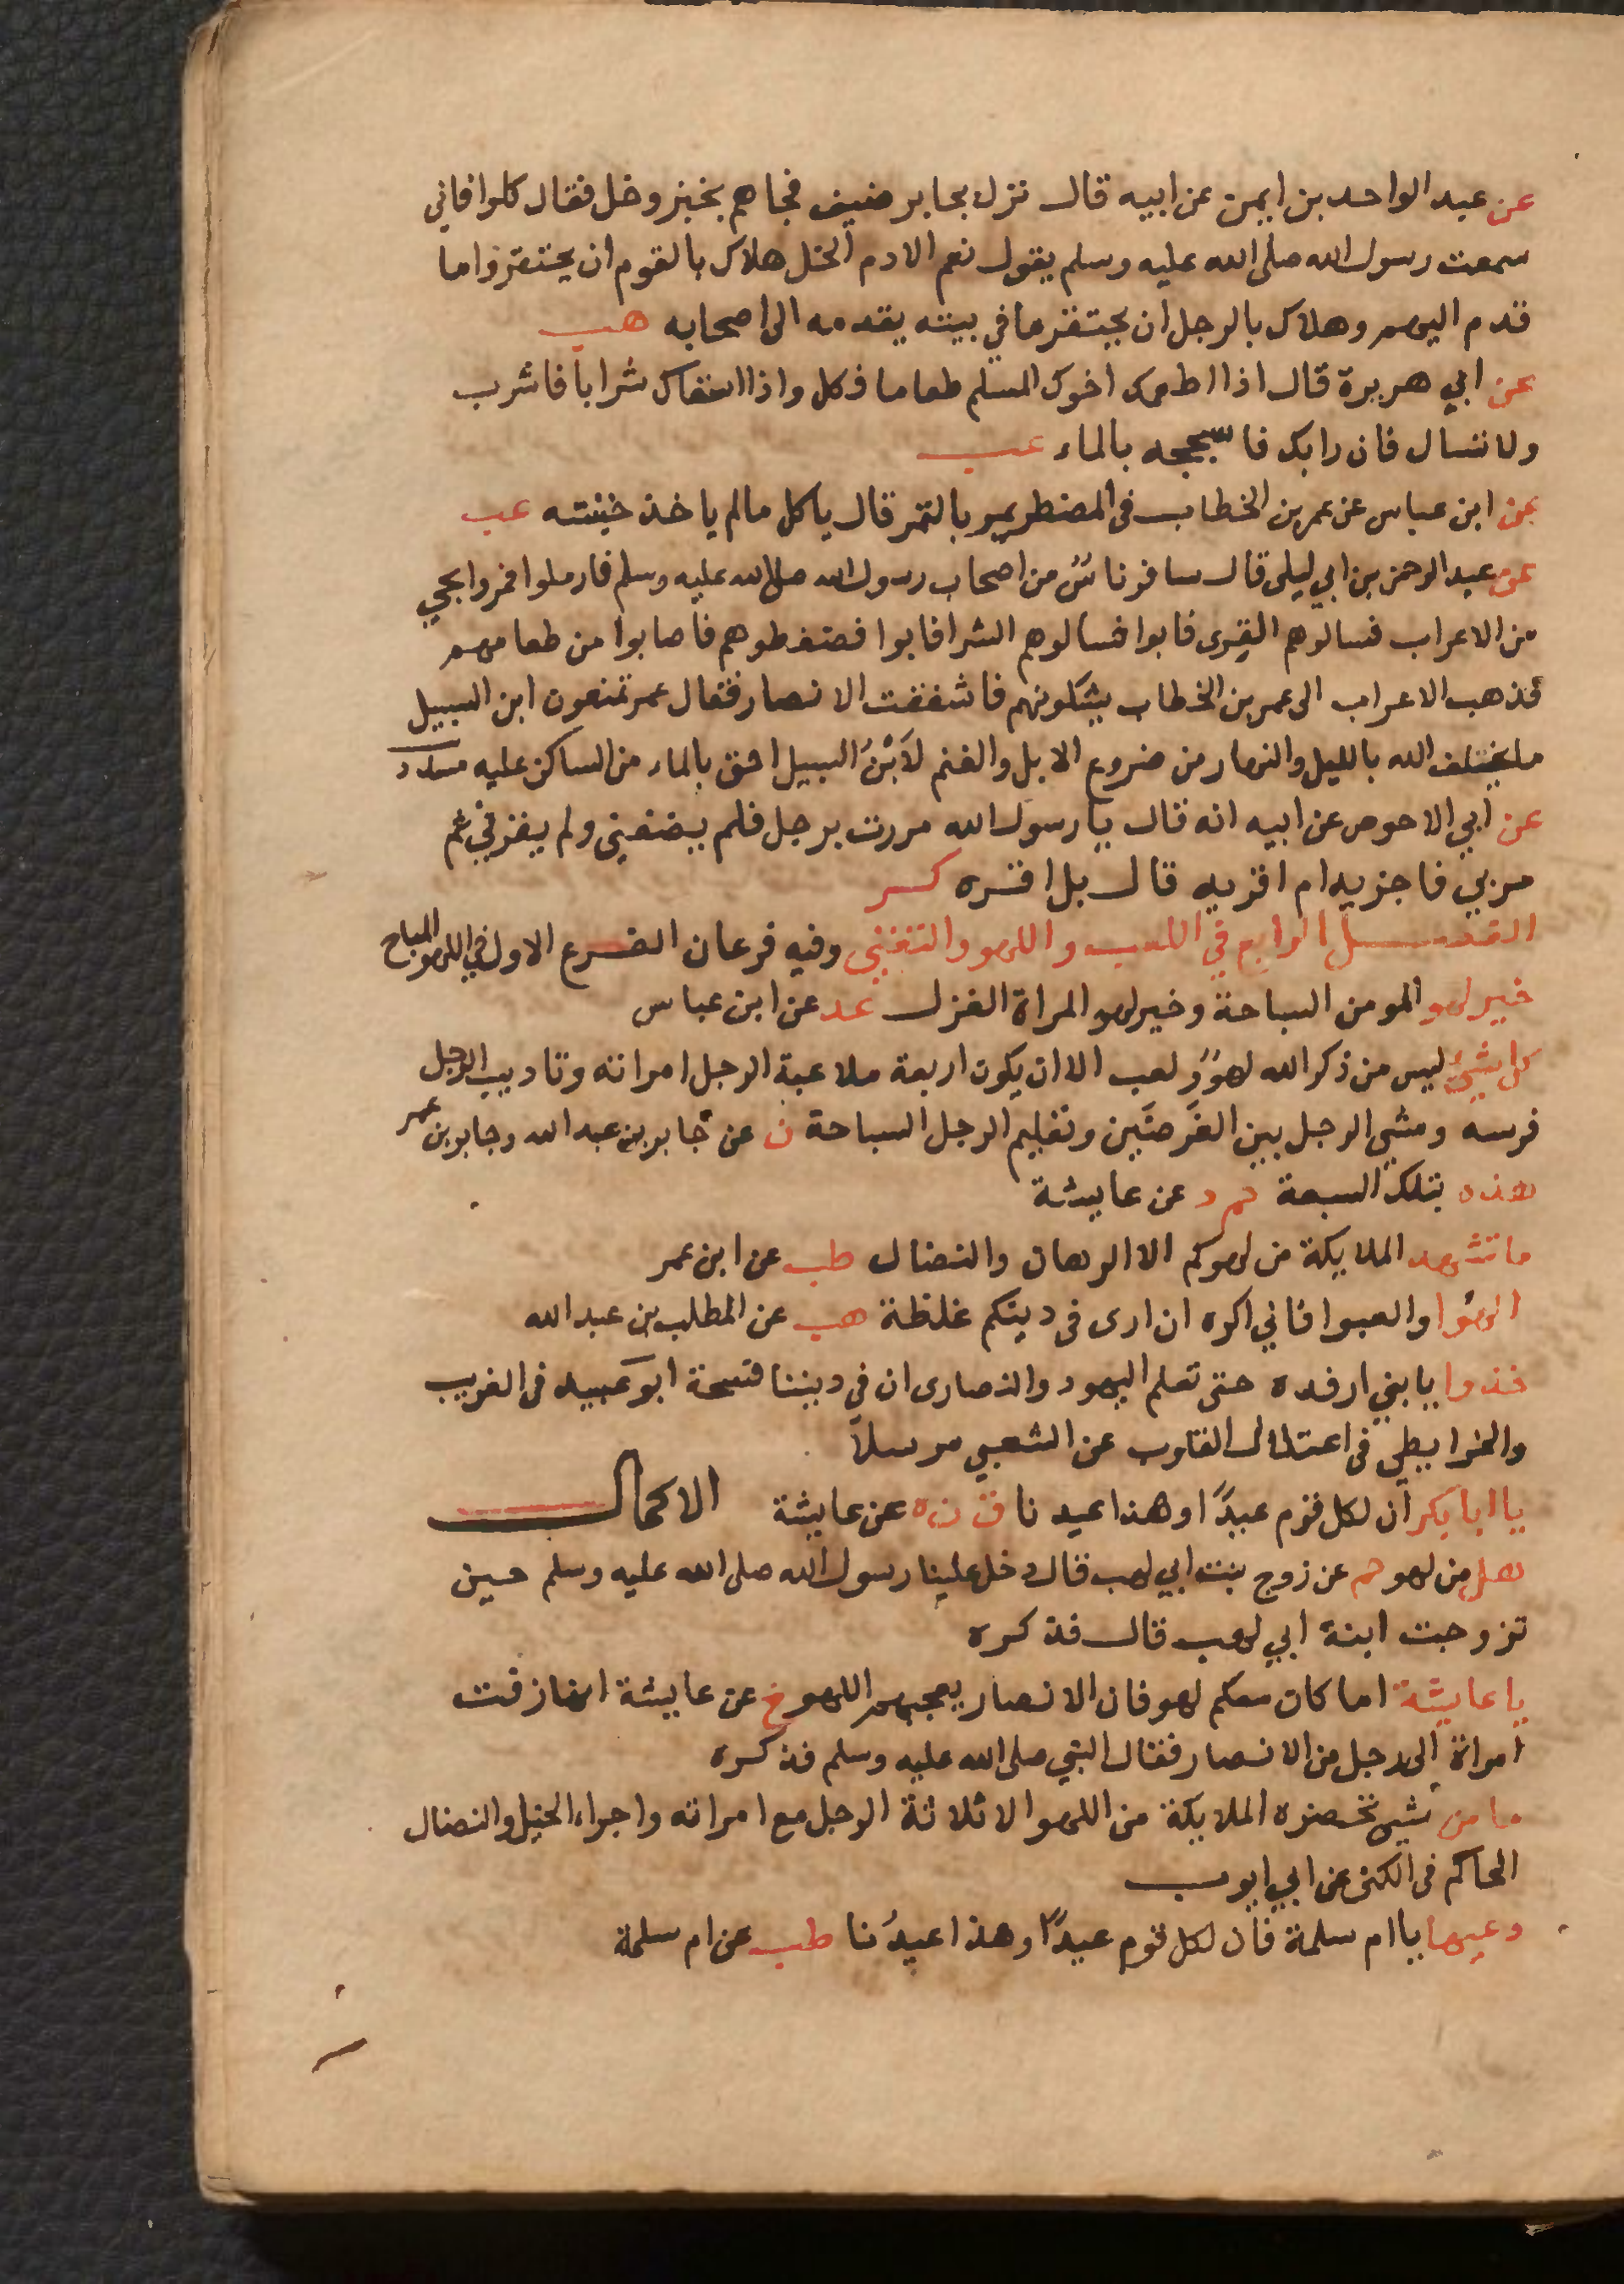 عن عبد الواحد بن ايمن عن ابيه قال نزل بجابر ضيف فجاهم بخبز وخل فقال كلوا فاني
سمعت رسول الله صلى الله عليه وسلم يقول نعم الادم الخل هلاك بالقوم ان يحتقروا ما
قدم اليهم وهلاك بالرجل ان يحتقر ما في بيته يقدمه الى اصحابه هب
عن ابي هريرة قال اذا اطعمك اخوك المسلم طعاما فكل واذا اسقاك شرابا فاشرب
ولا تسال فان رابك فاسججه بالماء عب
عن ابن عباس عن عمر بن الخطاب في المضطر يمر بالتمر قال ياكل مالم ياخذ خبنته عب
عن عبد الرحمن بن ابي ليلى قال سافر ناسٌ من اصحاب رسول الله صلى الله عليه وسلم فارملوا فمروا بحي
من الاعراب فسالوهم القرى فابوا فسالوهم الشرا فابوا فضغطوهم فاصابوا من طعامهم
فذهب الاعراب الى عمر بن الخطاب يشكونهم فاشفقت الانصار فقال عمر تمنعون ابن السبيل
ما يختلف الله بالليل والنهار من ضروع الابل والغنم لَابْنُ السبيل احق بالماء من الساكن عليه مسدد
عن ابي الاحوص عن ابيه انه قال يا رسول الله مررت برجل فلم يضفني ولم يقرني ثم
مر بي فاجزيه ام اقريه قال بل اقره كر
الفصل الرابع في اللعب واللهو والتغني وفيه فرعان الفرع الاول في اللهو المباح
خير لهو المومن السباحة وخير لهو المراة الغزل عد عن ابن عباس
كل شيء ليس من ذكر الله لهوٌ ولعب الا ان يكون اربعة ملاعبة الرجل امراته وتاديب الرجل
فرسه ومشي الرجل بين الغَرضَين وتعليم الرجل السباحة ن عن جابر بن عبد الله وجابر بن عمير
هذه بتلك السبعة حم د عن عايشة
ما تشهد الملايكة من لهوكم الا الرهان والنضال طب عن ابن عمر
الهُوا والعبوا فاني اكره ان ارى في دينكم غلظة هب عن المطلب بن عبد الله
خذوا يا بني ارفده حتى تعلم اليهود والنصارى ان في ديننا فسحة ابو عبيد في الغريب
والخرايطي في اعتلال القلوب عن الشعبي مرسلاً
يا ابا بكر ان لكل قوم عيدًا وهذا عيدنا ق ن ه عن عايشة الاكمال
هل من لهو حم عن زوج بنت ابي لهب قال دخل علينا رسول الله صلى الله عليه وسلم حين
تزوجت ابنة ابي لهب قال فذكره
يا عايشة اما كان معكم لهو فان الانصار يعجبهم اللهو خ عن عايشة انها زفت
امراة الى رجل من الانصار فقال النبي صلى الله عليه وسلم فذكره
ما من شيء تحضره الملايكة من اللهو الا ثلاثة الرجل مع امراته واجراء الخيل والنضال
الحاكم في الكنى عن ابي ايوب
دعيها يا ام سلمة فان لكل قوم عيدًا وهذا عيدُنا طب عن ام سلمة